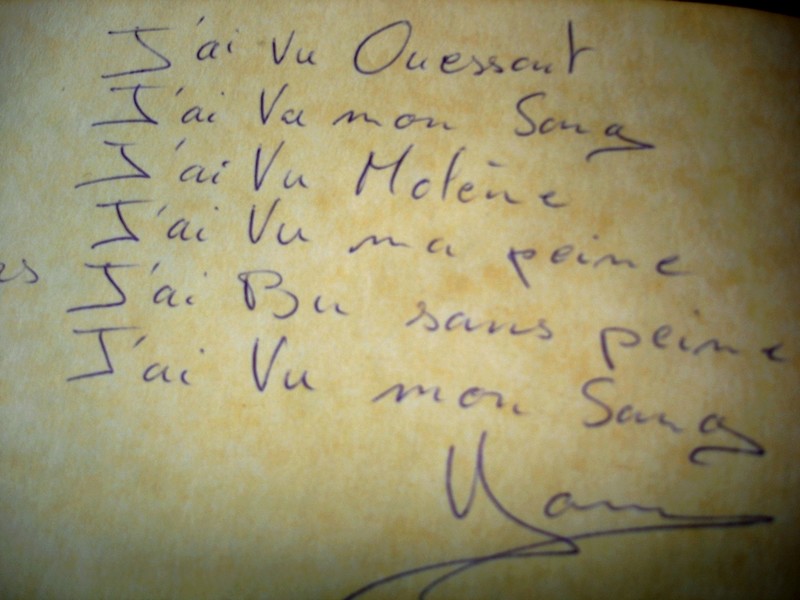 J'ai Vu Ouessant
J'ai Vu mon Sang
J'ai Vu Molène
J'ai Vu ma peine
es J'ai Bu sans peine
J'ai Vu mon Sang
Yann